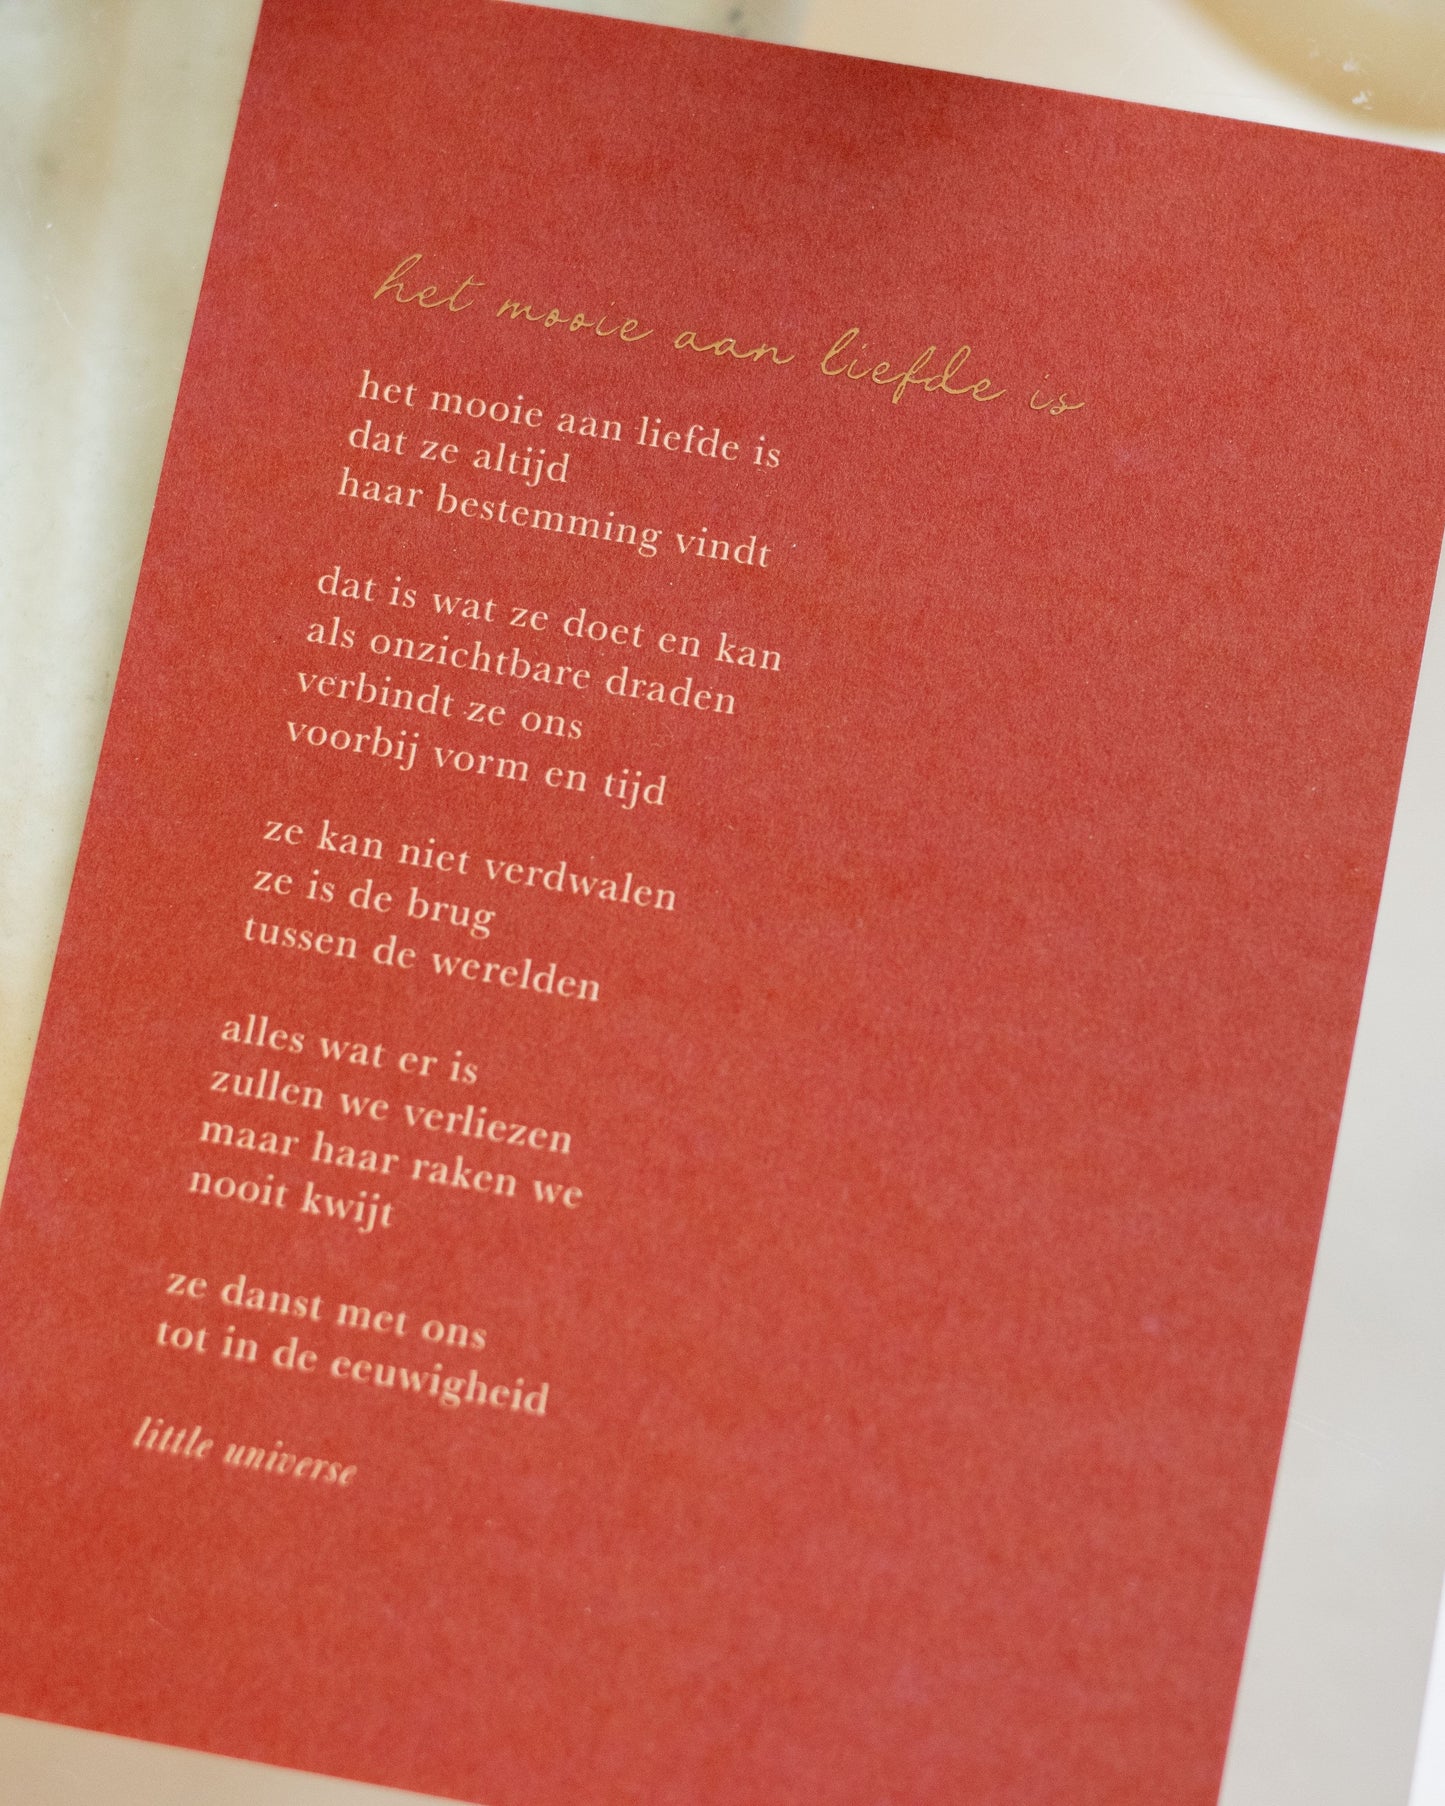 het mooie aan liefde is
het mooie aan liefde is
dat ze altijd
haar bestemming vindt
dat is wat ze doet en kan
als onzichtbare draden
verbindt ze ons
voorbij vorm en tijd
ze kan niet verdwalen
ze is de brug
tussen de werelden
alles wat er is
zullen we verliezen
maar haar raken we
nooit kwijt
ze danst met ons
tot in de eeuwigheid
little universe